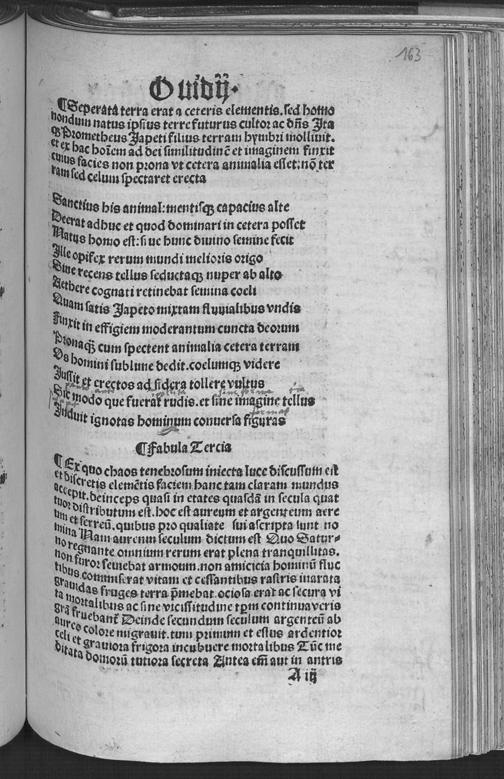 163
Ouidij.
¶Seperata terra erat a ceteris elementis. sed homo
nondum natus ipsius terre futurus cultor ac dn̄s Ita
qꝫ Prometheus Iapeti filius terram hymbri molliuit.
et ex hac hoīem ad dei similitudinē et imaginem finxit
cuius facies non prona vt cetera animalia esset: nō ter
ram sed celum spectaret erecta
Sanctius his animal: mentisqꝫ capacius alte
Deerat adhuc et quod dominari in cetera posset
Natus homo est: siue hunc diuino semine fecit
Ille opifex rerum mundi melioris origo
Siue recens tellus seductaqꝫ nuper ab alto
Aethere cognati retinebat semina coeli
Quam satis Iapeto mixtam fluuialibus vndis
Finxit in effigiem moderantum cuncta deorum
Pronaqꝫ cum spectent animalia cetera terram
Os homini sublime dedit. coelumqꝫ videre
Iussit et erectos ad sidera tollere vultus
Sic modo que fuerat rudis. et sine imagine tellus
Induit ignotas hominum conuersa figuras
¶Fabula Tercia
¶Ex quo chaos tenebrosum iniecta luce discussum est
et discretis elemētis faciem hanc tam claram mundus
accepit. deinceps quasi in etates quasdā in secula quat
tuor distributum est. hoc est aureum et argenteum aere
um et ferreū. quibus pro qualiate sui ascripta sunt no
mina Nam aureum seculum dictum est Quo Satur-
no regnante omnium rerum erat plena tranquillitas.
non furor seuiebat armoum. non amicicia hominū fluc
tibus commiserat vitam et cessantibus rastris inarata
grauidas fruges terra p̄mebat. ociosa erat ac secura vi
ta mortalibus ac sine vicissitudine tpm continuaveris
grā fruebant̄ Deinde secundum seculum argenteū ab
aureo colore migrauit. tum primum et estus ardentior
celi et grauiora frigora incubuere mortalibus Tūc me
ditata domorū tutiora secreta Antea em̄ aut in antris
A iij